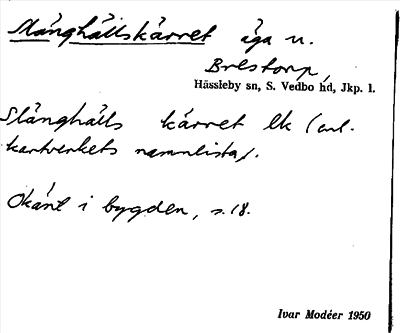 Slånghållskärret äga u.
Brestorp,
Hässleby sn, S. Vedbo hd, Jkp. l.
Slånghålls kärret Ek (enl.
kartverkets namnlista).
Okänt i bygden, s. 18.
Ivar Modéer 1950